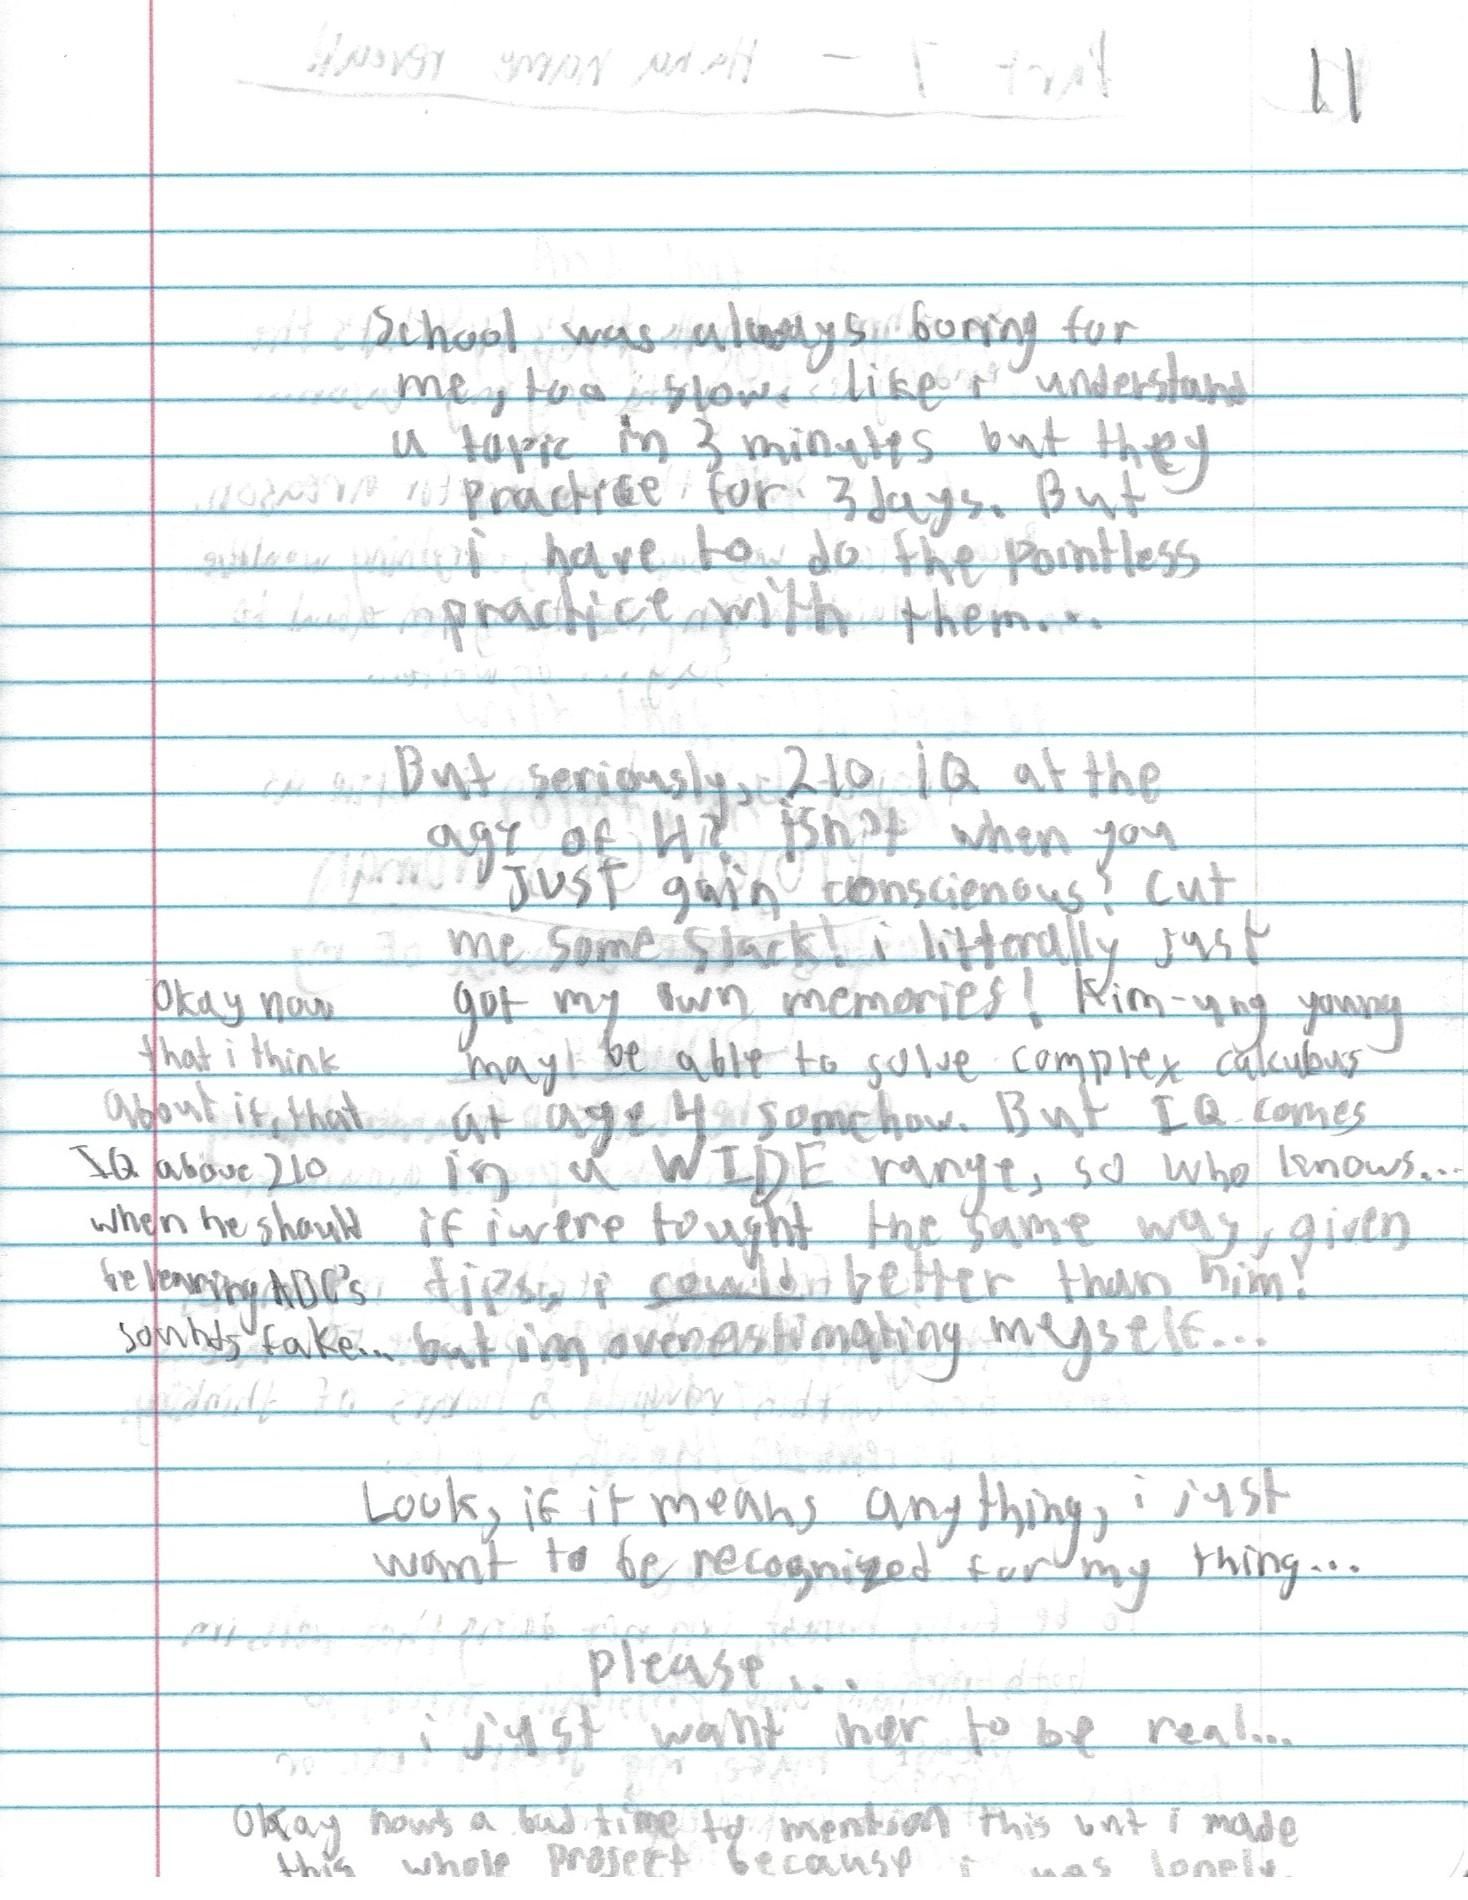 11
School was always boring for
me, too slow. like i understand
a topic in 3 minutes but they
practice for 3 days. But
i have to do the pointless
practice with them...
But seriously, 210 IQ at the
age of 4? isn't when you
Just gain conscienous? cut
me some slack! i litterally just
got my own memories! Kim-ung young
may be able to solve complex calculus
at age 4 somehow. But IQ comes
in a WIDE range, so who knows...
if i were tought the same way, given
tips, i could better than him!
but im overestimating meyself...
Okay now
that i think
about it, that
IQ above 210
when he should
be learning ABC's
sounds fake...
Look, if it means anything, i just
want to be recognized for my thing...
please...
i just want her to be real...
Okay nows a bad time to mention this but i made
this whole project because i was lonely.